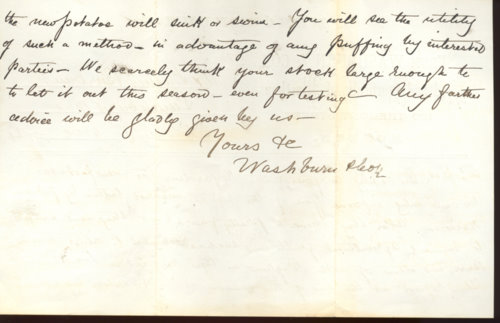 the new potatoe will sink or swim - You will see the utility
of such a method - in advantage of any puffing by interested
parties - We scarcely think your stock large enough to
to let it out this season - even for testing Any farther
advice will be gladly given by us -
Yours &c
Washburn & Co